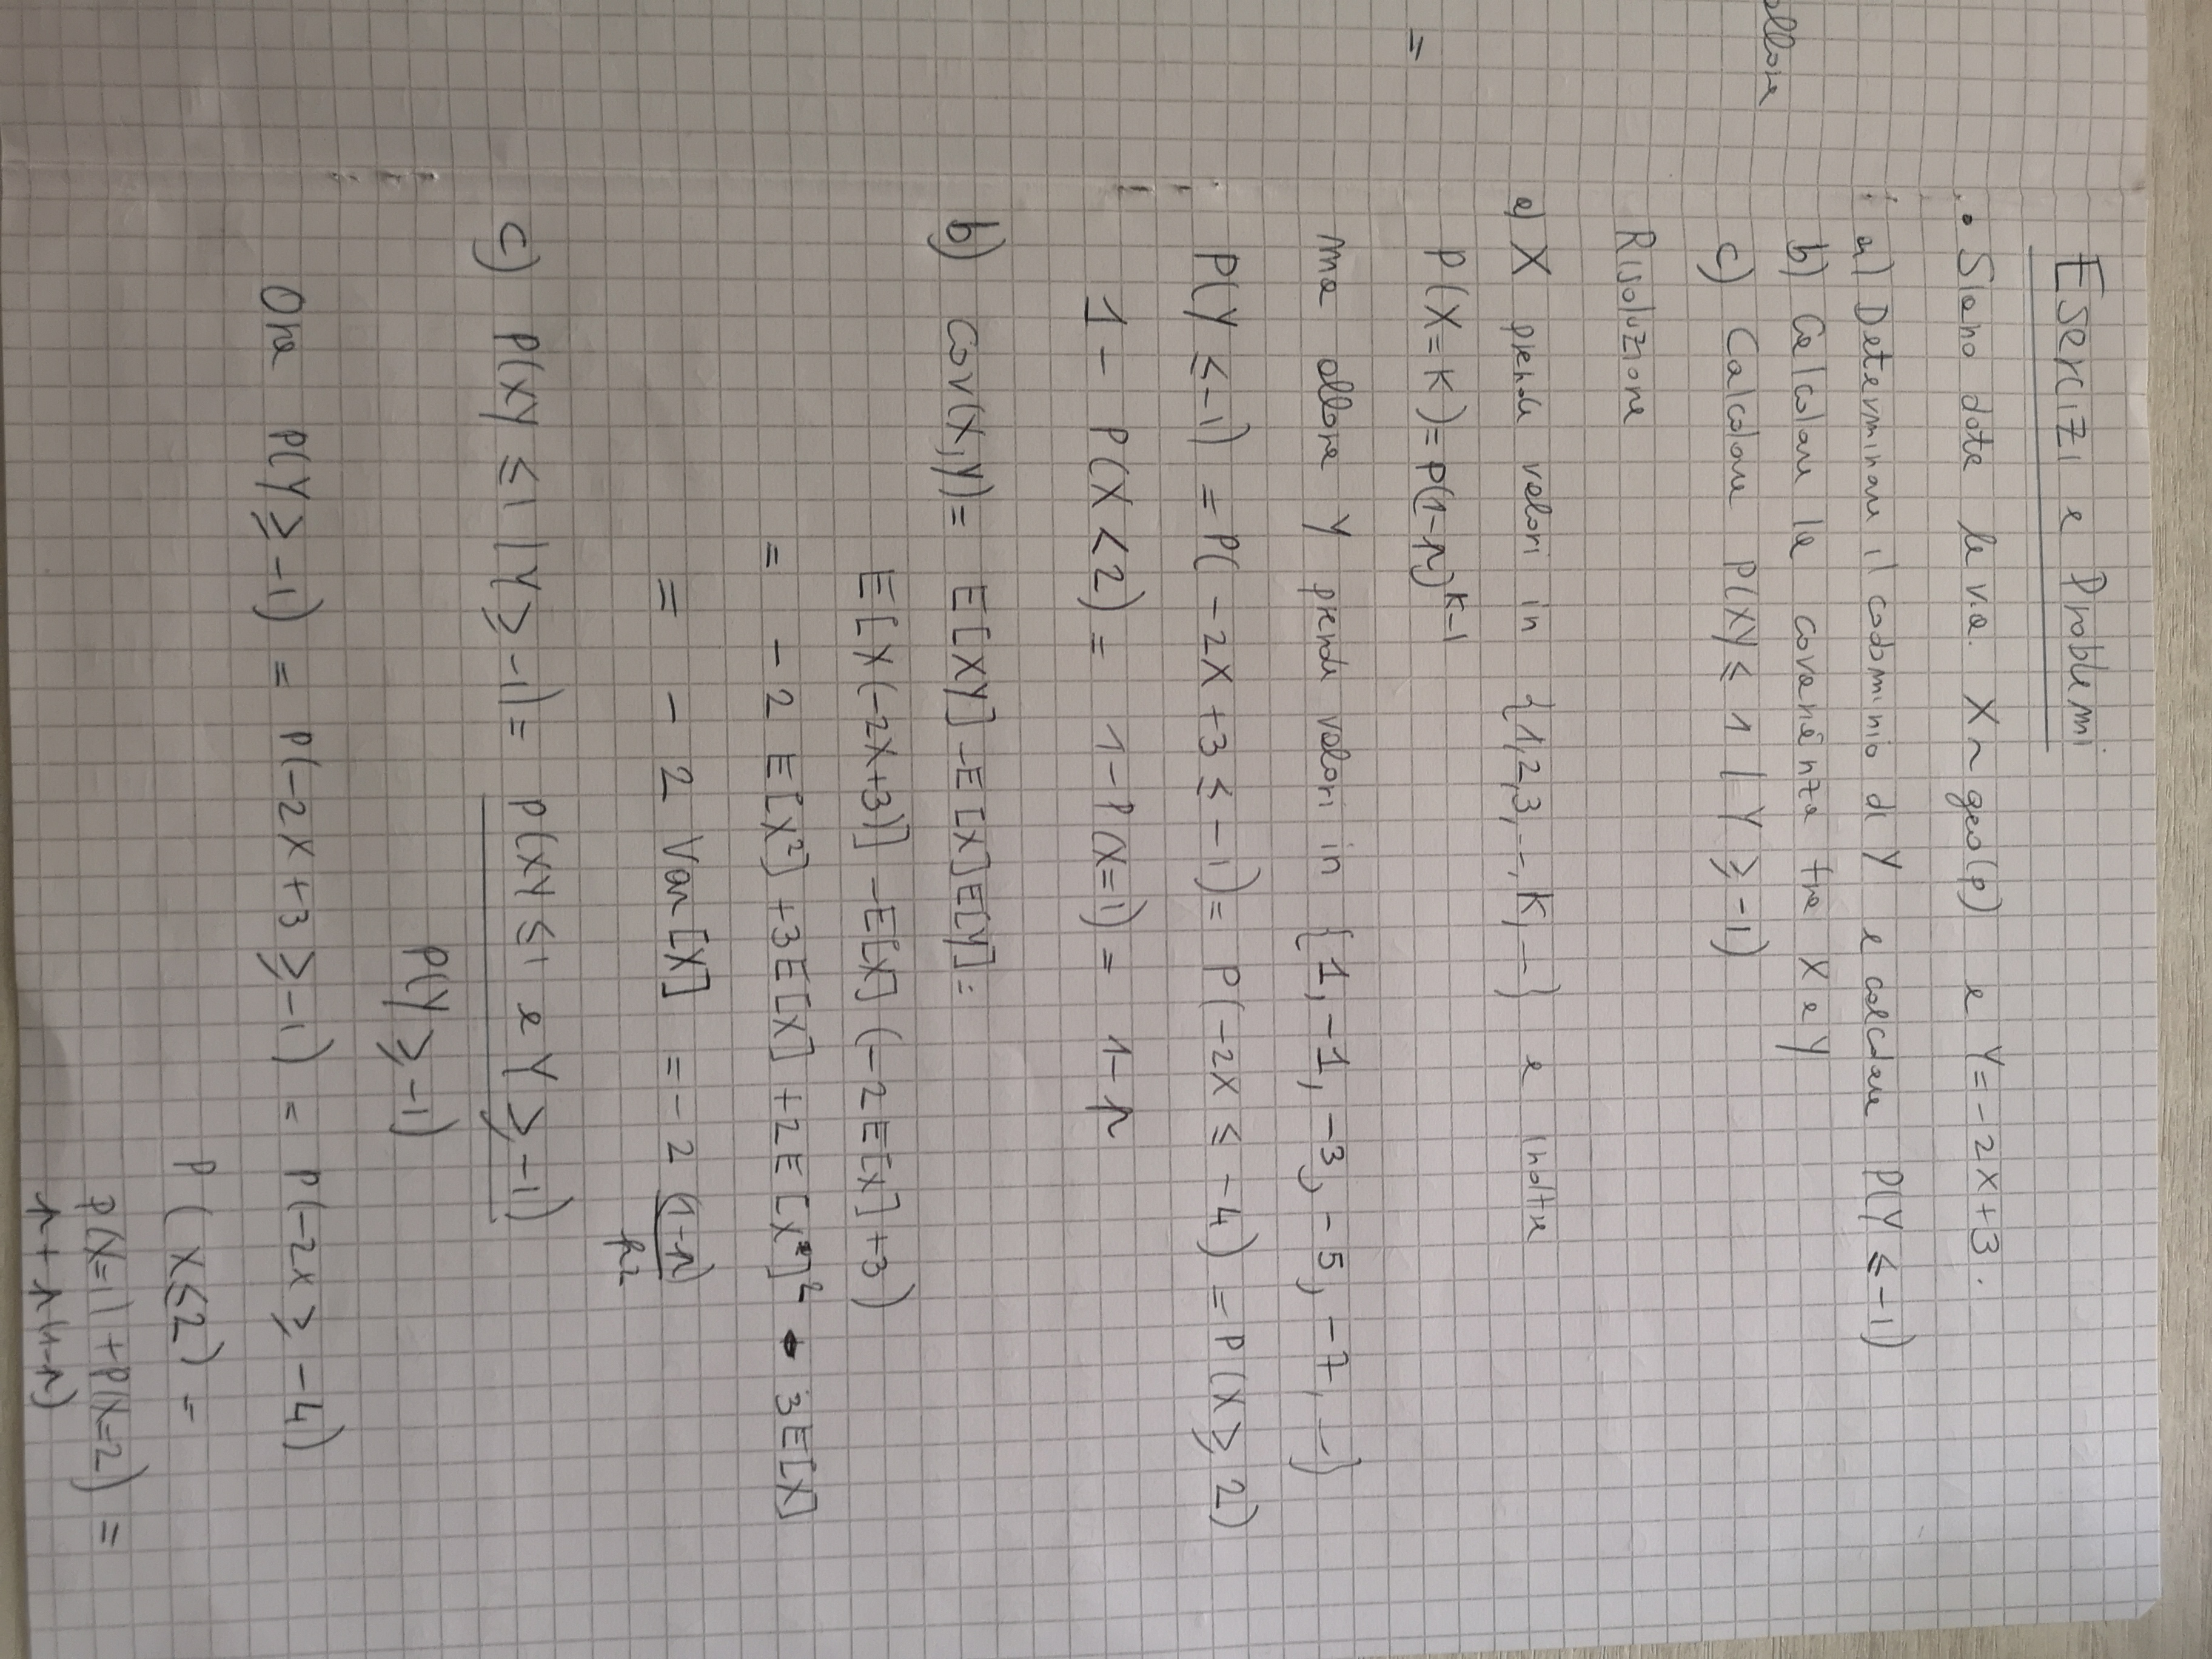 Esercizi e Problemi
• Siano date le v.a. X ~ geo(p) e Y = -2X+3.
a) Determinare il codominio di Y e calcolare P(Y ≤ -1)
b) Calcolare la covarianza tra X e Y
allora
c) Calcolare P(XY ≤ 1 | Y ≥ -1)
Risoluzione
a) X prende valori in {1,2,3, ..., K, ...} e inoltre
P(X=K) = p(1-p)^{K-1}
=
ma allora Y prende valori in {1, -1, -3, -5, -7, ...}
P(Y ≤ -1) = P(-2X+3 ≤ -1) = P(-2X ≤ -4) = P(X ≥ 2)
1 - P(X < 2) = 1 - P(X=1) = 1 - p
b) cov(X,Y) = E[XY] - E[X]E[Y] =
E[X(-2X+3)] - E[X](-2E[X]+3)
= -2 E[X²] + 3E[X] + 2E[X]² - 3E[X]
= -2 Var[X] = -2 (1-p)/p²
c) P(XY ≤ 1 | Y ≥ -1) = P(XY ≤ 1 e Y ≥ -1)
P(Y ≥ -1)
Ora P(Y ≥ -1) = P(-2X+3 ≥ -1) = P(-2X ≥ -4)
P(X ≤ 2) =
P(X=1) + P(X=2) =
p + p(1-p)